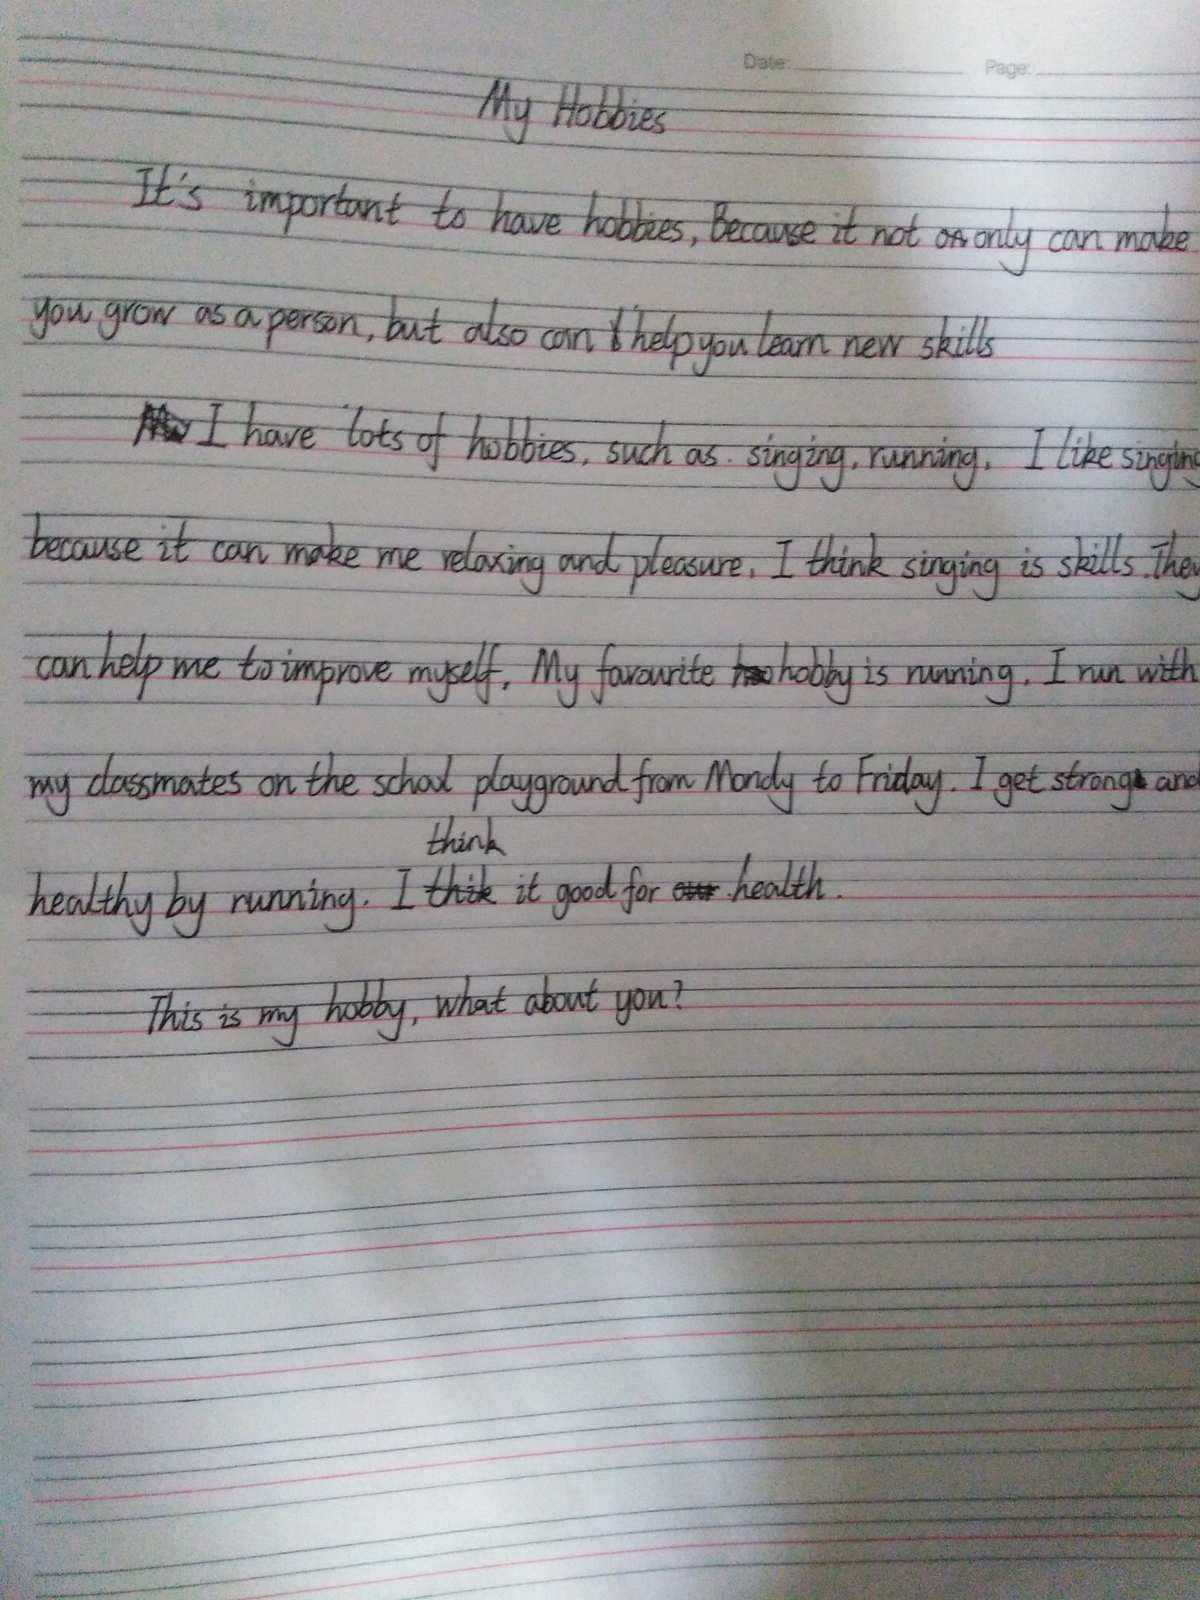 Date: Page:
My Hobbies
It's important to have hobbies, Because it not only can make
you grow as a person, but also can help you learn new skills
I have lots of hobbies, such as singing, running. I like singing
because it can make me relaxing and pleasure. I think singing is skills. They
can help me to improve myself. My favourite hobby is running. I run with
my classmates on the school playground from Mondy to Friday. I get strong and
think
healthy by running. I thik it good for our health.
This is my hobby, what about you?